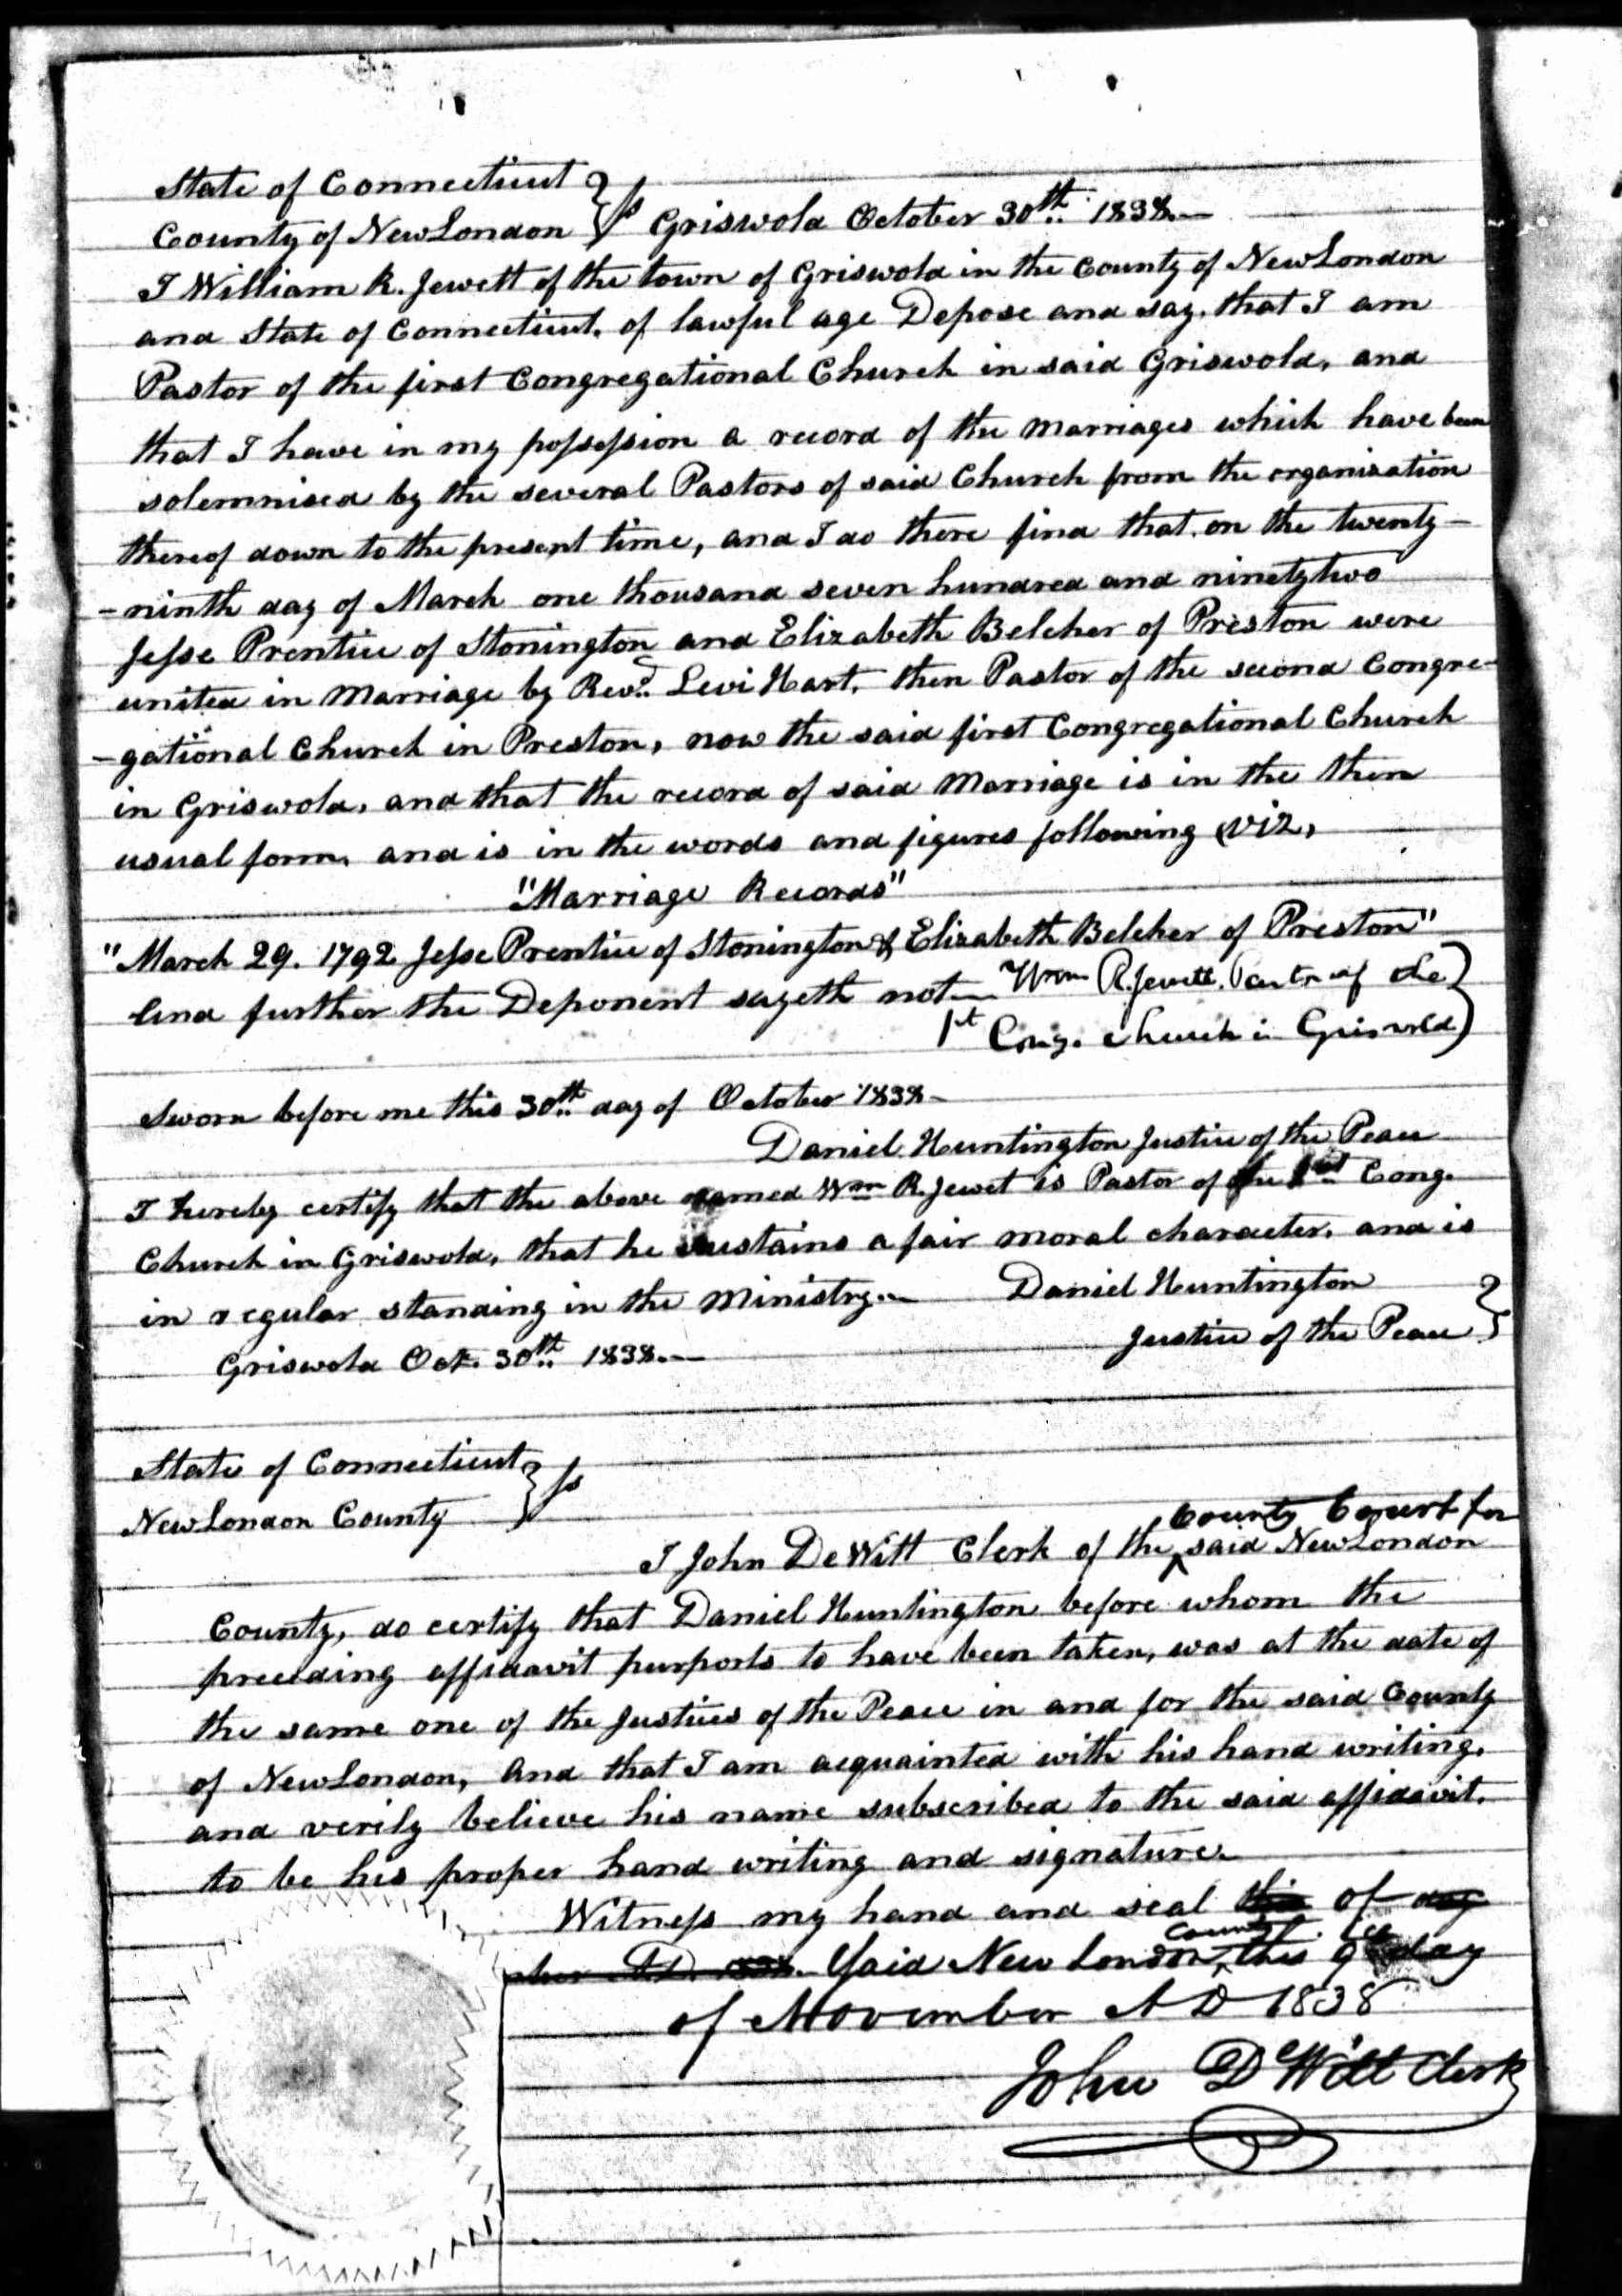 State of Connecticut } ss
County of NewLondon } Griswold October 30th 1838.—
I William R. Jewett of the town of Griswold in the County of NewLondon
and State of Connecticut, of lawful age Depose and say, that I am
Pastor of the first Congregational Church in said Griswold, and
that I have in my possession a record of the marriages which have been
solemnised by the several Pastors of said Church from the organisation
thereof down to the present time, and I do there find that, on the twenty-
-ninth day of March one thousand seven hundred and ninetytwo
Jesse Prentice of Stonington and Elizabeth Belcher of Preston were
united in Marriage by Revd. Levi Hart, then Pastor of the second Congre-
-gational Church in Preston, now the said first Congregational Church
in Griswold, and that the record of said Marriage is in the then
usual form, and is in the words and figures following viz,
"Marriage Records"
"March 29. 1792 Jesse Prentice of Stonington & Elizabeth Belcher of Preston"
And further the Deponent sayeth not— Wm R. Jewett. Pastor of the }
1st Cong. Church in Griswold }
Sworn before me this 30th day of October 1838—
Daniel Huntington Justice of the Peace
I hereby certify that the above named Wm R. Jewet is Pastor of the 1st Cong.
Church in Griswold, that he sustains a fair moral character, and is
in regular standing in the Ministry.— Daniel Huntington }
Griswold Oct. 30th 1838.— Justice of the Peace }
State of Connecticut } ss
NewLondon County }
County Court for
I John DeWitt Clerk of the ^ said NewLondon
County, do certify that Daniel Huntington before whom the
preceding affidavit purports to have been taken, was at the date of
the same one of the Justices of the Peace in and for the said County
of NewLondon, And that I am acquainted with his hand writing,
and verily believe his name subscribed to the said affidavit,
to be his proper hand writing and signature.
Witness my hand and seal this of day
County
AD 1838. Said New London, ^ this 9th day
of November AD 1838
John DeWitt Clerk